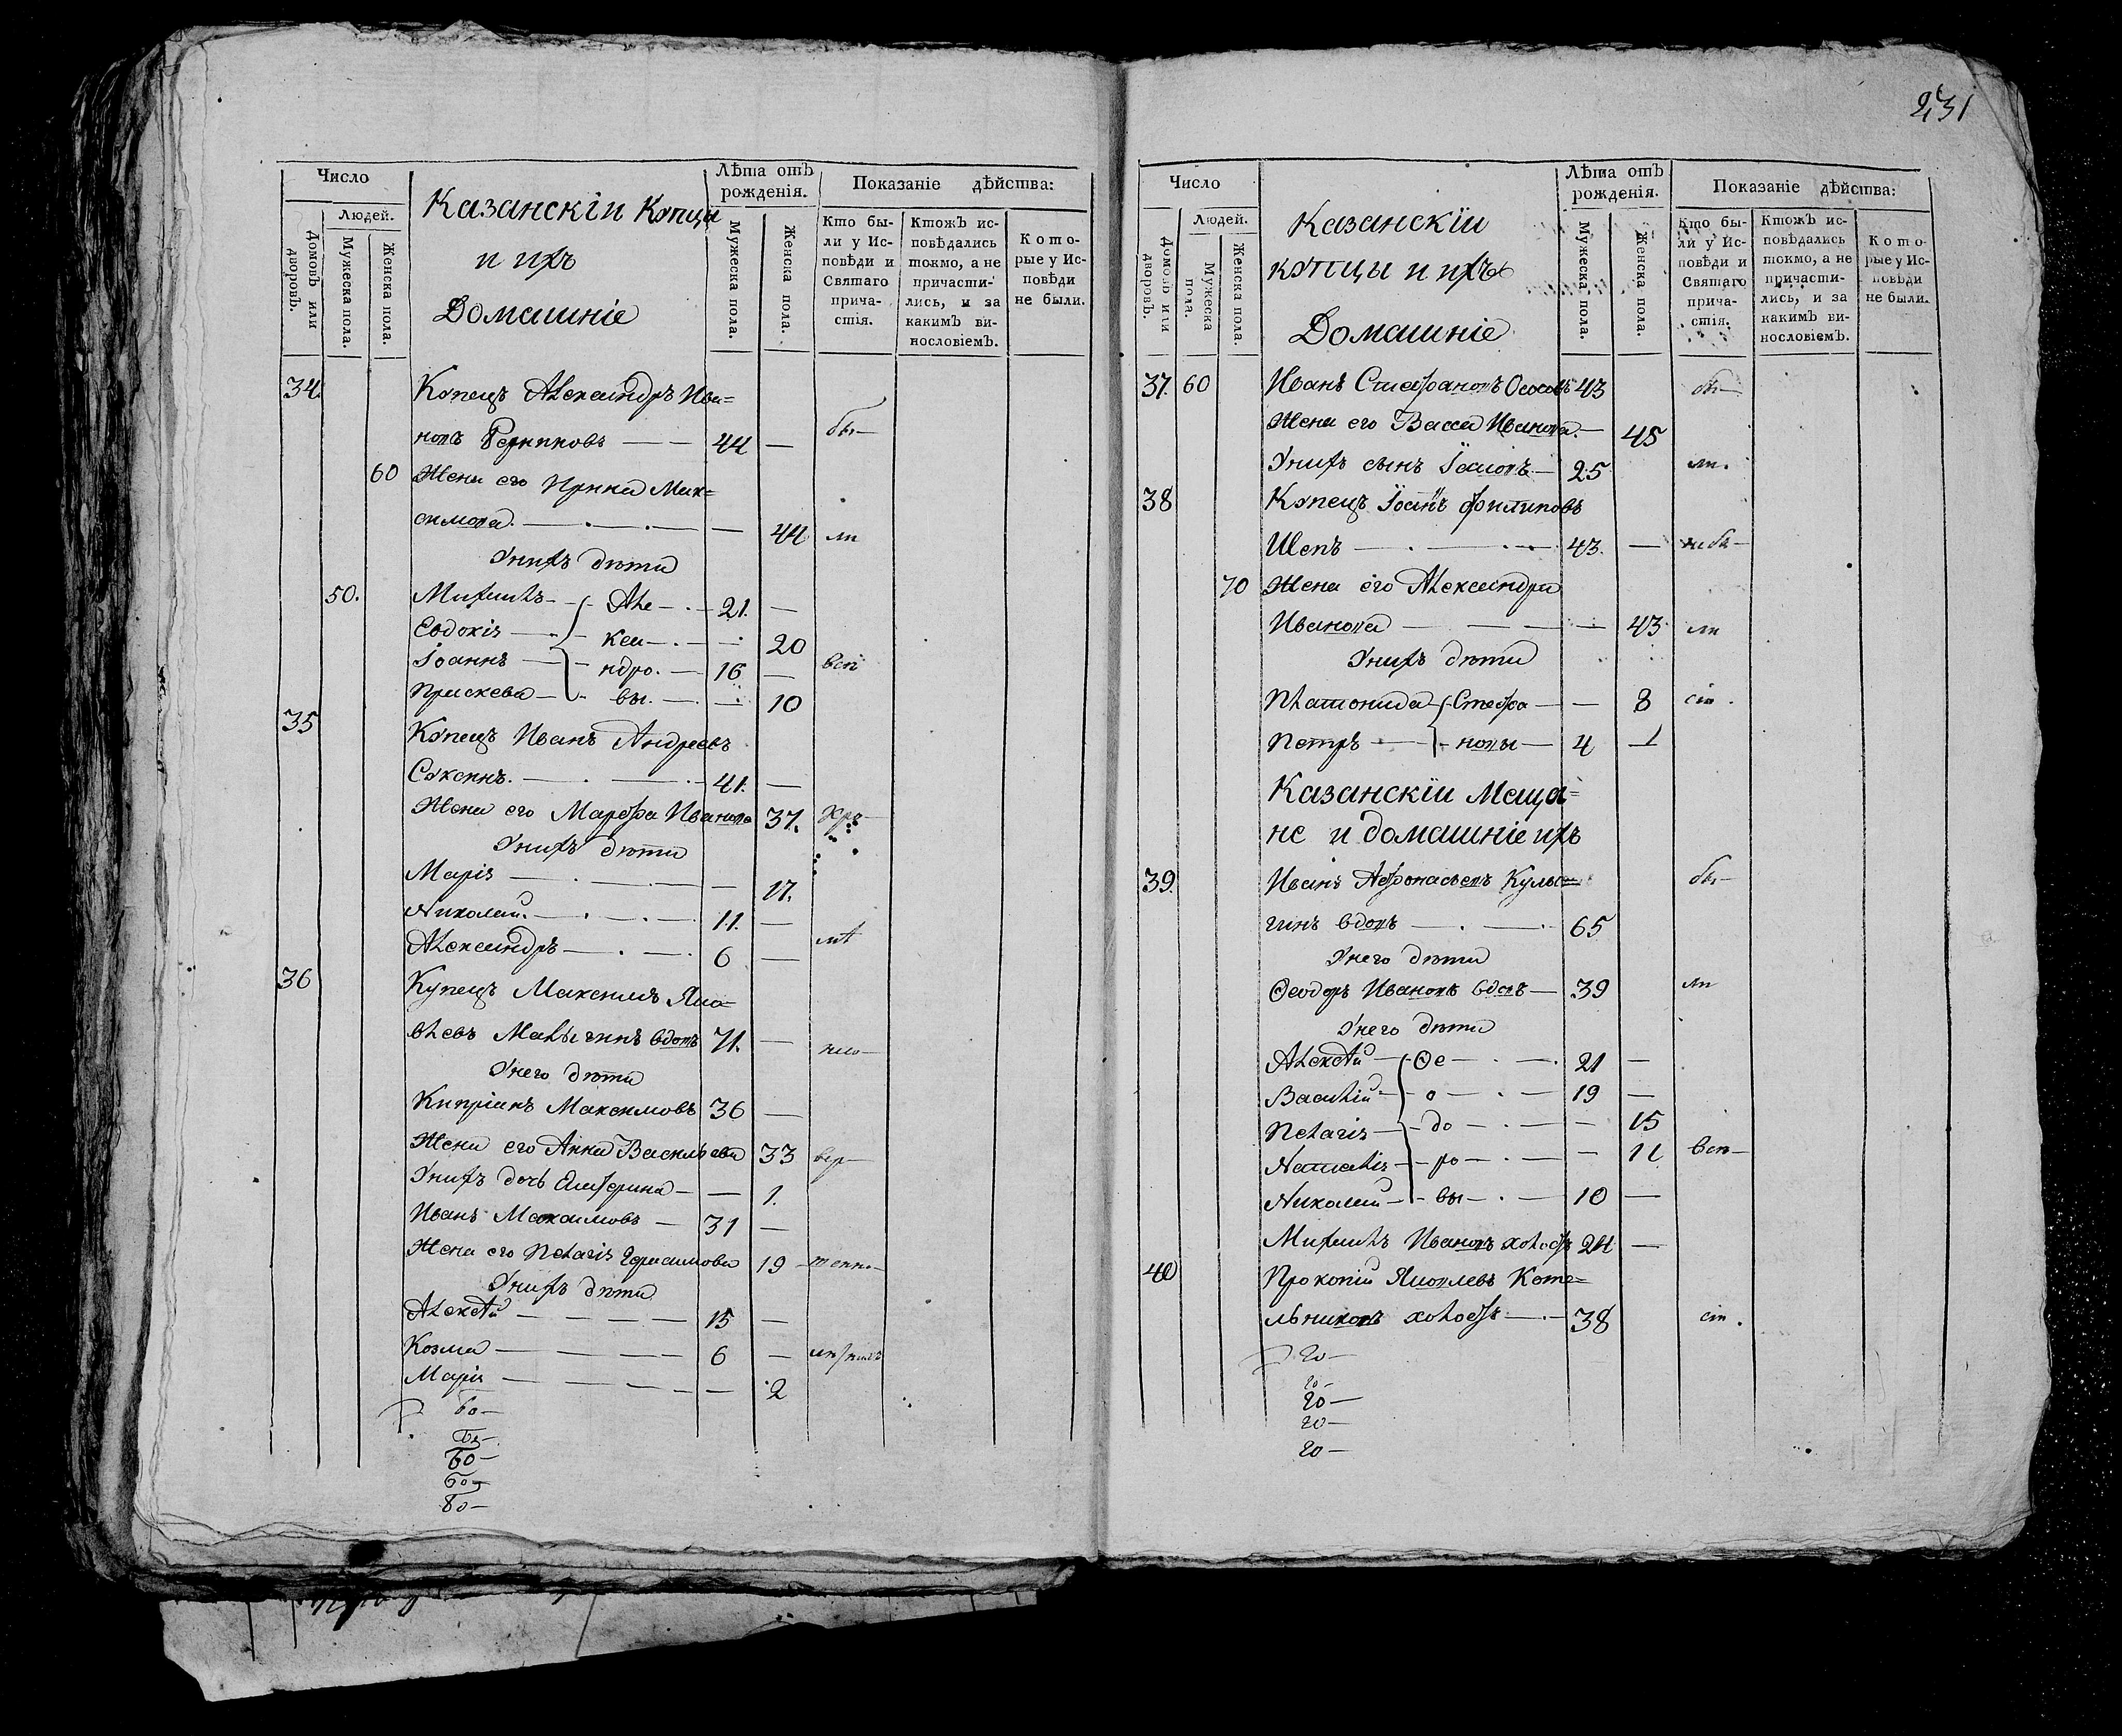 Число
Людей.
Домовъ или дворовъ.
Мужеска пола.
Женска пола.
Казанскіи Купцы
и ихъ
Домашніе
Лѣта отъ рожденія.
Мужеска пола.
Женска пола.
Показаніе дѣйства:
Кто были у Исповѣди и Святаго причастія.
Ктожъ исповѣдались токмо, а не причастились, и за какимъ винословіемъ.
Которые у Исповѣди не были.
34. Купецъ Александръ Ива=
новъ 44 — бы—
60 Жена его Ирина Мак=
симова. — 44 ли
У нихъ дѣти
50. Михаилъ — Але — 21. —
Евдокія — кса — 20
Іоаннъ — ндро. — 16 — вси
Прискева — вы. — 10
35 Купецъ Иванъ Андреевъ
Сукинъ. — 41. —
Жена его Марфа Иванова 37.
У нихъ дѣти
Марія — 17.
Николай. — 11. —
Александръ — 6 —
36 Купецъ Максимъ Яко=
влевъ Малыгинъ вдовъ 71. —
У него дѣти
Кипріанъ Максимовъ 36 —
Жена его Анна Васильева 33
У нихъ дочь Екатерина — 1.
Иванъ Максимовъ — 31 —
Жена его Пелагія Герасимова 19
У нихъ дѣти
Алексѣй — 15 —
Козма — 6 —
Марія — 2
231
Число
Людей.
Домовъ или дворовъ.
Мужеска пола.
Женска пола.
Казанскіи
купцы и ихъ
Домашніе
Лѣта отъ рожденія.
Мужеска пола.
Женска пола.
Показаніе дѣйства:
Кто были у Исповѣди и Святаго причастія.
Ктожъ исповѣдались токмо, а не причастились, и за какимъ винословіемъ.
Которые у Исповѣди не были.
37. 60 Иванъ Стефановъ 43 бы—
Жена его Васса Иванова. — 45
У нихъ сынъ — 25 ли.
38 Купецъ Іоаннъ Филиповъ
43. —
70 Жена его Александра
Иванова — 43 ли
У нихъ дѣти
Платонида — Стефа — 8
Петръ — новы — 4
Казанскіи Меща=
не и домашніе ихъ
39. Иванъ Афонасьевъ Кулы= бы—
гинъ вдовъ — 65
У него дѣти
Ѳеодоръ Ивановъ вдовъ — 39 ли
У него дѣти
Алексѣй — Ѳе — 21 —
Василій — о — 19 —
Пелагія — до — 15
Наталія — ро — 11 вси—
Николай — вы — 10 —
Михаилъ Ивановъ холостъ 24 —
40 Прокопій Яковлевъ Коте=
льниковъ холостъ — 38